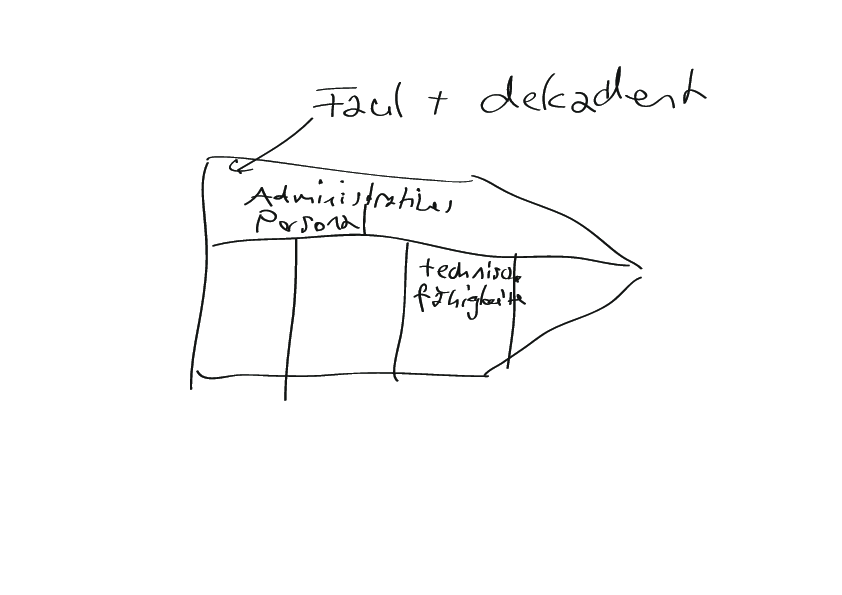 Faul + dekadent
Administratives
Persona
technisc.
fähigkeite